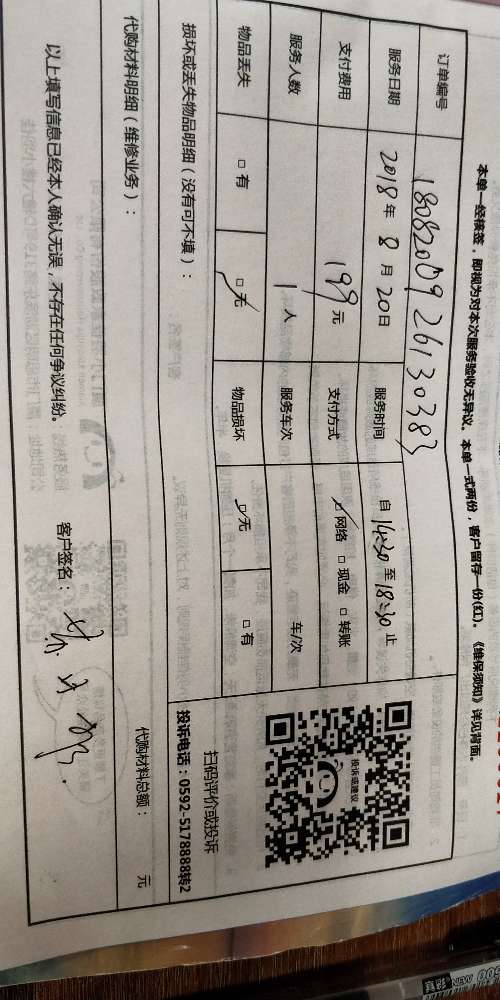 本单一经核签，即视为对本次服务验收无异议。本单一式两份，客户留存一份(红)。《维保须知》详见背面。
订单编号 18082009 26130383
服务日期 2018年 8月 20日 服务时间 自 14:30 至 18:30 止
支付费用 199元 支付方式 ☑网络 □现金 □转账
服务人数 1人 服务车次 车/次
物品丢失 □有 ☑无 物品损坏 ☑无 □有
投诉或建议
扫码评价或投诉
投诉电话：0592-5178888转2
损坏或丢失物品明细（没有可不填）：
代购材料明细（维修业务）：
代购材料总额： 元
以上填写信息已经本人确认无误，不存在任何争议纠纷。 客户签名：